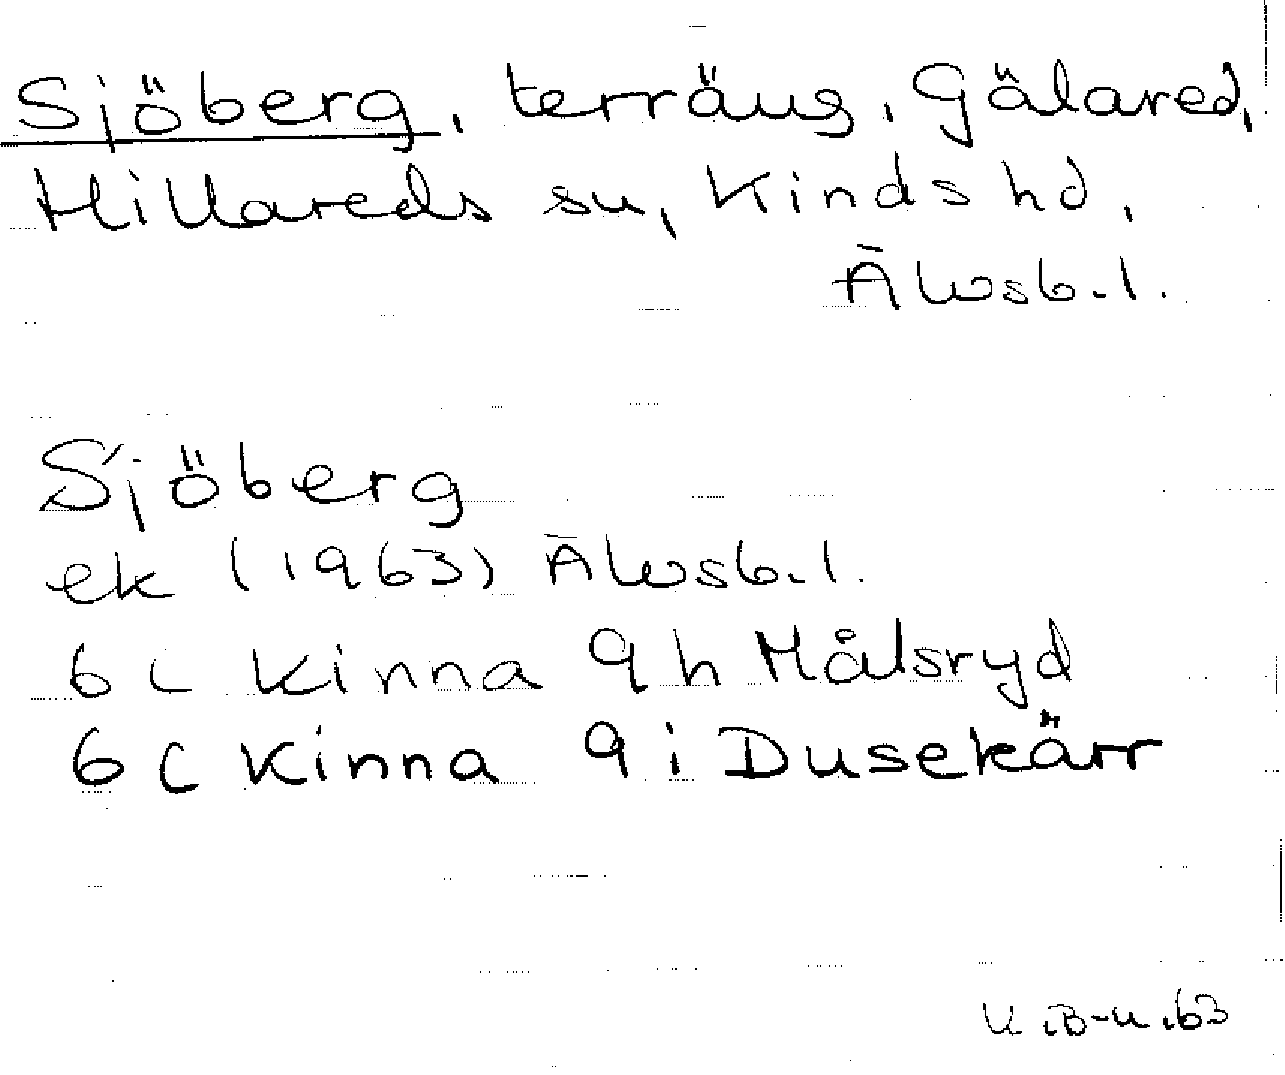 Sjöberg, terräng, Gälared,
Hillareds sn, Kinds hd,
Älvsb. l.
Sjöberg
ek (1963) Älvsb. l.
6 C Kinna 9 h Målsryd
6 C Kinna 9 i Dusekärr